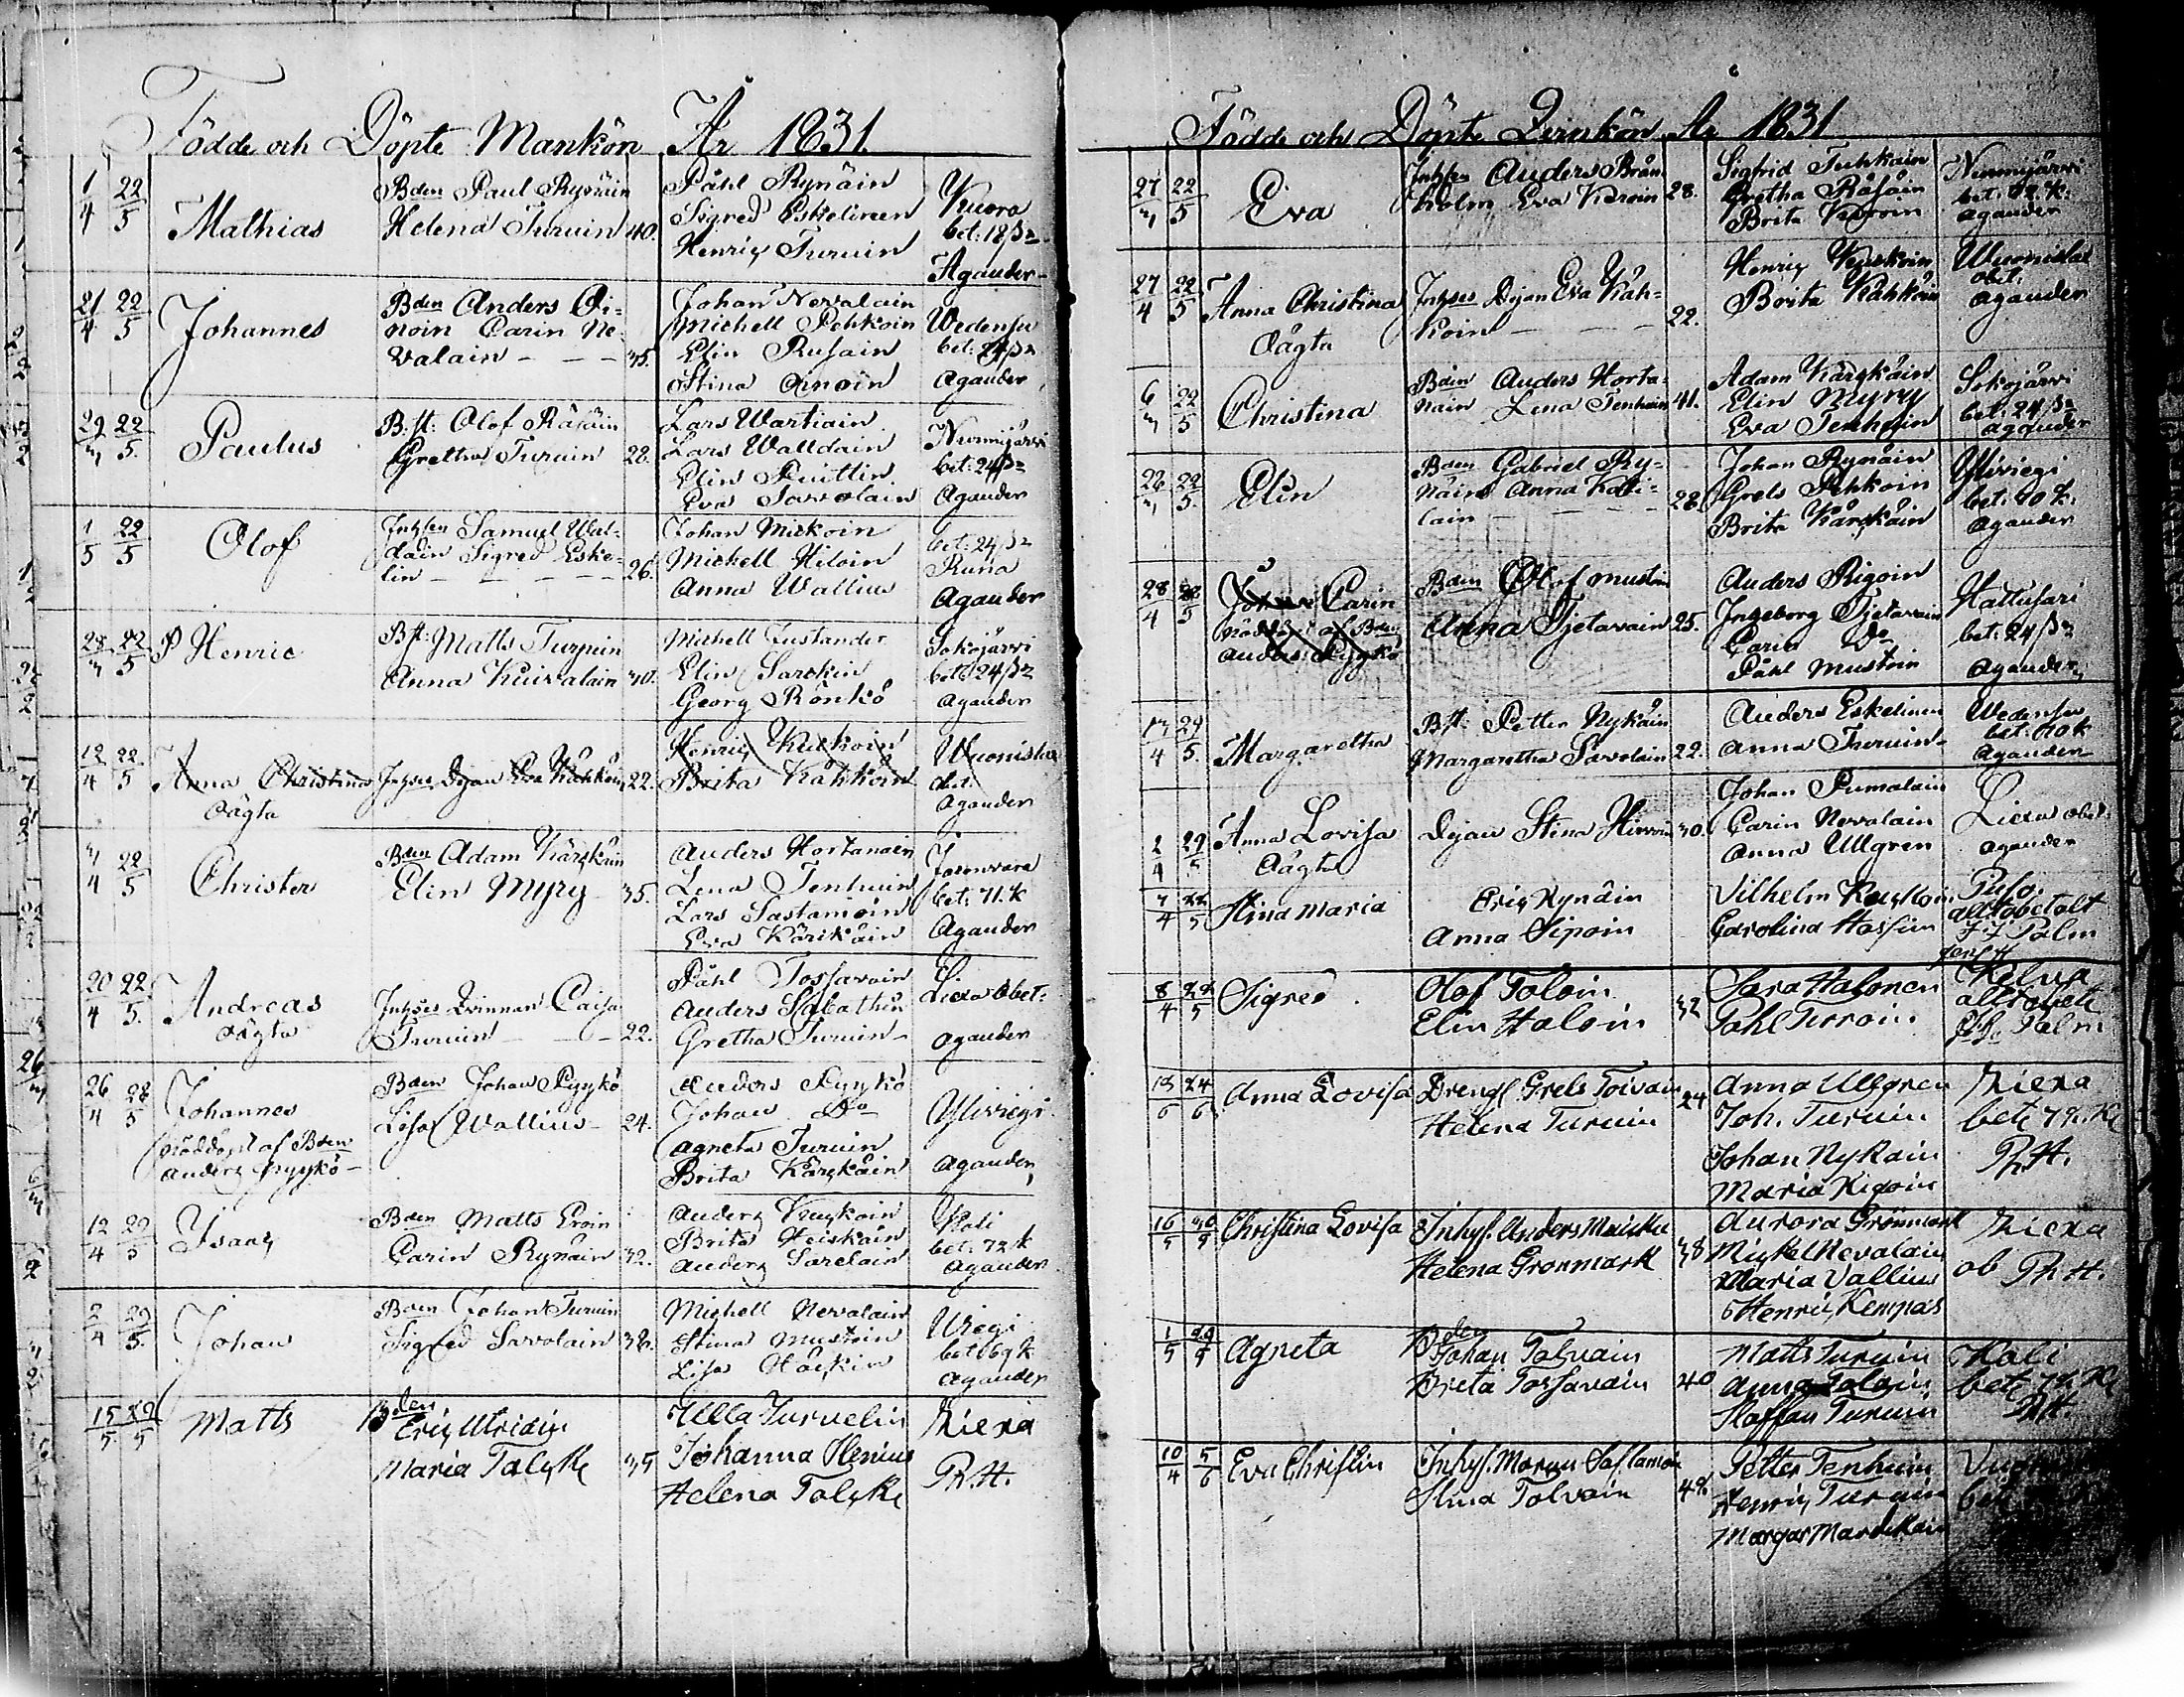 Födde och Döpte Mankön År 1831.
1/4 22/5 Mathias
Bden Paul Rynäin
Helena Turuin 40.
Påhl Rynäin
Sigred Eskelinen
Henric Turuin
Kuora
bet: 18
Agander
21/4 22/5 Johannes
Bden Anders Oi-
noin Carin Ne-
valain - - - 35.
Johan Nevalain
Michell Pehkoin
Elin Rusain
Stina Oinoin
Wedensu
bet: 24
Agander
29/3 22/5. Paulus
B:st: Olof Räsäin
Gretha Turuin 28.
Lars Wartiain
Lars Walldain
Elin Puittin
Eva Savolain
Nurmijärvi
bet: 24
Agander
1/5 22/5 Olof
Inhsen Samuel Wal-
dain Sigred Eske-
lin - - - - 26.
Johan Mickoin
Michell Hiloin
Anna Wallius
bet: 24
Runa
Agander
28/3 22/5 Henric
Bst: Matts Turuin
Anna Kuivalain 30.
Michell Zustander
Elin Sarckin
Georg Rönkö
Sokojärvi
bet: 24
Agander
12/4 22/5 Anna Christina
Oägta
Inhses Dejan Eva Kähköin 22.
Henric Keuskoin
Brita Kähköin
Wuonisla
Agander
3/4 22/5 Christer
Bden Adam Kärckäin
Elin Myry 35.
Anders Hortanain
Lena Tenhuin
Lars Sastamoin
Eva Kärikäin
Jamnvara
bet: 71. k
Agander
20/4 22/5. Andreas
oägta
Inhses Qvinnan Caisa
Turuin - - 22.
Påhl Tossavain
Anders Sabathin
Gretha Turuin
Liexa Obet:
Agander
26/4 28/5 Johannes
nöddöpt af Bden
Anders Pyykö
Bden Johan Pyykö
Lisa Wallius 24.
Anders Pyykö
Johan Do
Agneta Turuin
Brita Kärckäin
Yliviegi
Agander
12/4 29/5 Isaac
Bden Matts Eroin
Carin Rynäin 32.
Anders Keuskoin
Brita Heiskain
Anders Sarelain
Koli
bet: 72 k
Agander
2/4 29/5. Johan
Bden Johan Turuin
Sigred Savolain 36.
Michell Nevalain
Stina Mustoin
Lisa Häckin
Viegi
bet 69 k
Agander
15/5 29/5 Matts
Bden
Eric Utriain
Maria Talcke 35
Ulla Turvelin
Johanna Stenius
Helena Talcke
Liexa
Ph. H.
Födde och Döpte Qvinkön År 1831
27/3 22/5 Eva
Inhsen Anders Brån
holm Eva Karvin 28.
Sigfrid Tuhkain
Gretha Räsäin
Brita Karvin
Nurmijärvi
bet: 62 k.
Agander
27/4 22/5 Anna Christina
Oägta
Inhses Dejan Eva Käh-
köin - - - 22.
Henric Keuskoin
Brita Kähköin
Wuonislax
obet.
Agander
6/3 22/5 Christina
Bden Anders Horta-
nain Lena Tenhuin 41.
Adam Kärckäin
Elin Myry
Eva Tenhuin
Sokojärvi
bet: 24
Agander
26/3 22/5. Elin
Bden Gabriel Ry-
näin Anna Kati-
lain - - - - 28.
Johan Rynäin
Grels Pehkoin
Brita Kärckäin
Yliviegi
bet: 70 k.
Agander
28/4 28/5 Carin
nöddöpt af Bden
Anders Pyykö
Bden Olof Mustoin
Anna Tjetavain 25.
Anders Rigoin
Ingeborg Tjetavain
Carin Do
Påhl Mustoin
Hattusari
bet: 24
Agander
13/4 29/5. Margaretha
Bst: Petter Nykäin
Margaretha Savolain 22.
Anders Eskelinen
Anna Turuin
Wedensu
bet: 70 k
Agander
2/4 29/5 Anna Lovisa
Oägta
Dejan Stina Hirvoin 30.
Johan Pumalain
Carin Nevalain
Anna Ullgren
Liexa obet:
Agander
7/4 22/5 Stina Maria
Eric Rynäin
Anna Sipoin
Vilhelm Keuskoin
Carolina Hassin
Puso.
allt obetalt
Palm
8/4 22/5 Sigred
Olof Toloin
Elin Haloin 32
Sara Halonen
Pahl Turroin
Kelva
allt obet
Palm
13/6 24/6 Anna Lovisa
Dreng Grels Toivain 24
Helena Turuin
Anna Ullgren
Joh. Turuin
Johan Nykain
Maria Kigoin
Liexa
bet: 72. K
Ph. H.
16/5 30/5 Christina Lovisa
Inhys. Anders Maicku
Helena Gronmark 38
Aurora Grönmark
Mickel Nevalain
Maria Vallius
Henric Kempas
Liexa
ob Ph. H.
1/5 29/5 Agneta
Bden
Johan Tolvain
Breta Torsavain 40
Matts Turuin
Anna Tolvin
Staffan Turuin
Koli
bet: 72 K
Ph. H.
10/4 5/6 Eva Christin
Inhys. Marcu Sastamoin
Stina Tolvain 42
Petter Tenhuin
Henric Turuin
Margar Mardikain